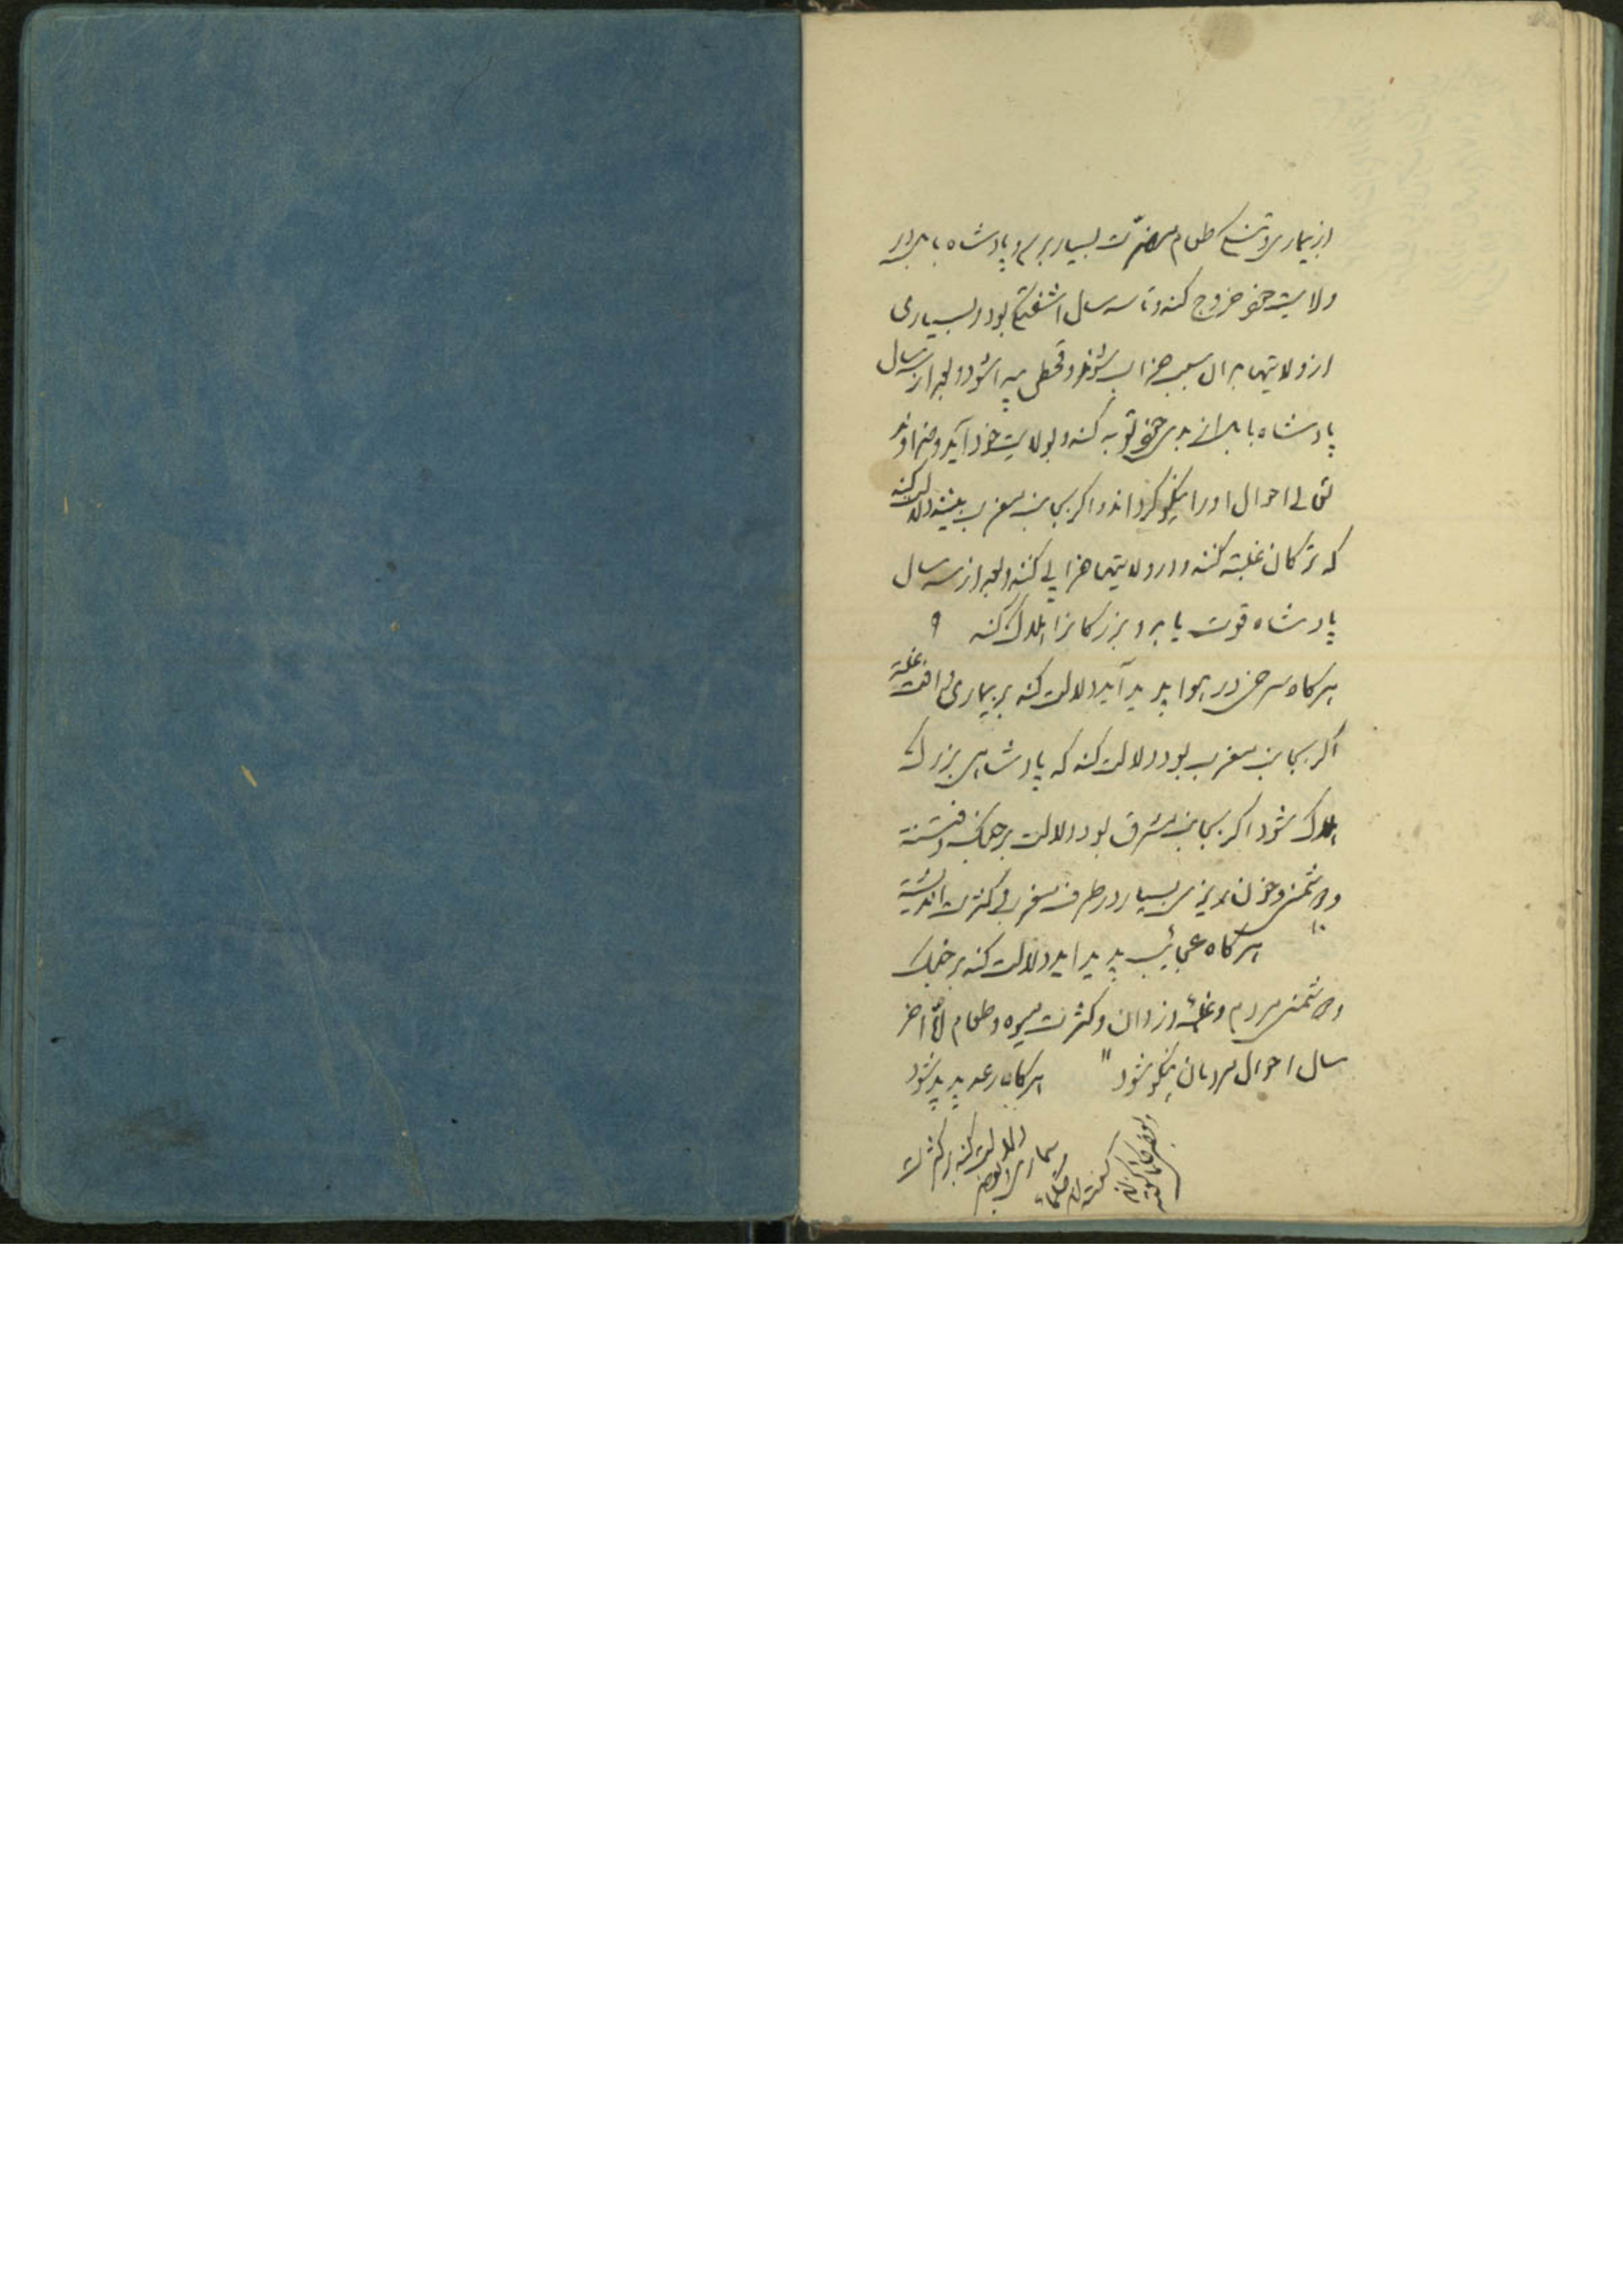 از بیماری و تنگی طعام مضرت بسیار برسد و پادشاه بابل در
ولایت خود خروج کند و تا سه سال آشفتگی بود و بسیاری
از ولایتها بدان سبب خراب شوند و قحطی پیدا شود و بعد از سه سال
پادشاه بابل از بدی خود توبه کند و بولایت خود آید و خداوند
تعالی احوال او را نیکو گرداند و اگر بجانب مغرب بیند دلالت کند
که ترکان غلبه کنند و در ولایتها خرابی کنند و بعد از سه سال
پادشاه قوت یابد و بزرگانرا هلاک کند ۹
هرگاه سرخی در هوا پدید آید دلالت کند بر بیماری و آفت غله
اگر بجانب مغرب بود دلالت کند که پادشاهی بزرگ
هلاک شود اگر بجانب مشرق بود دلالت بر جنگ و فتنه
و دشمنی و خون ریزی بسیار در طرف مغرب و کثرت اندیشه
۱۰ هرگاه عجائب پدید آید دلالت کند بر جنگ
و دشمنی مردم و غلبه دزدان و کثرت میوه و طعام اما آخر
سال احوال مردمان نیکو شود ۱۱ هرگاه رعد پدید شود
دلالت کند بر کثرت
بیماری و بعضی